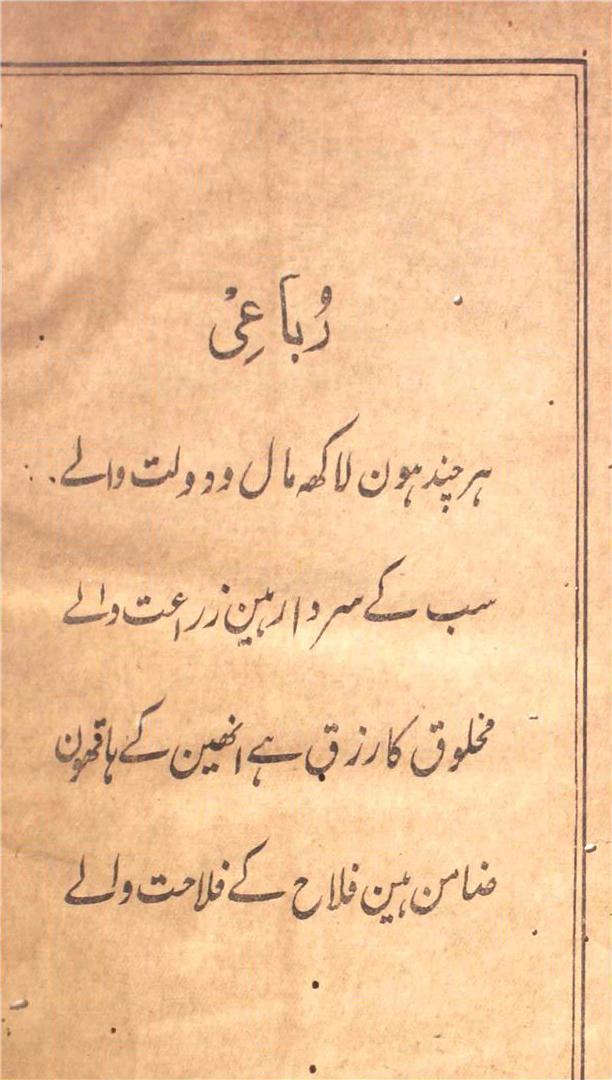 رُباعِیْ
ہر چند ہون لاکھ مال و دولت والے
سب کے سردار ہین زراعت والے
مخلوق کا رزق ہے انھین کے ہاتھون
ضامن ہین فلاح کے فلاحت والے